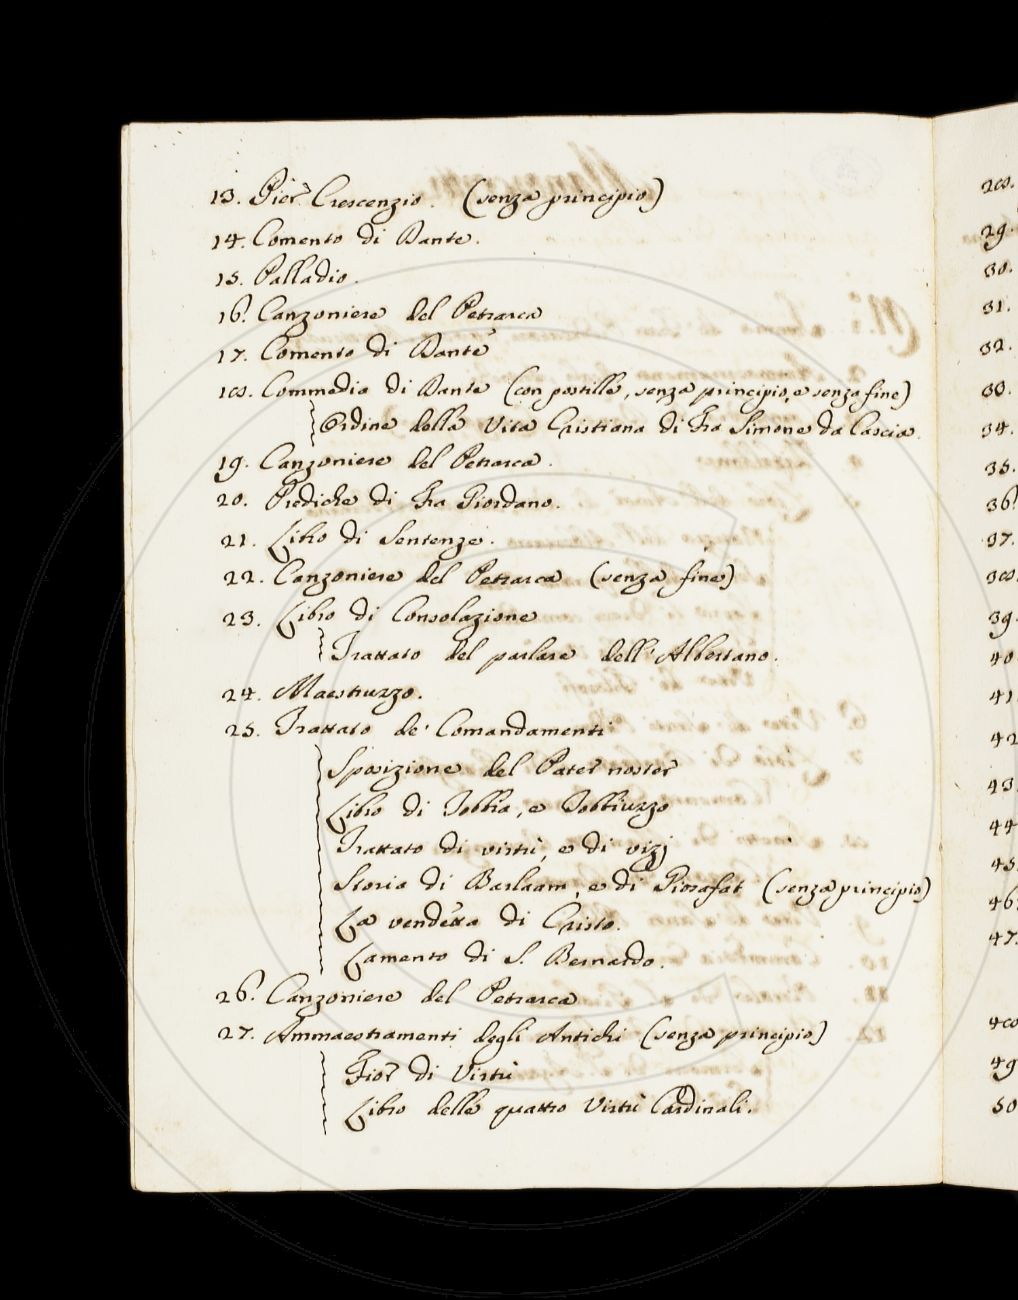 13. Pier Crescenzio. (senza principio)
14. Comento di Dante.
15. Palladio.
16. Canzoniere del Petrarca
17. Comento di Dante
18. Commedia di Dante (con postille, senza principio, e senza fine)
Ordine della Vita Cristiana di Fra Simone da Cascia.
19. Canzoniere del Petrarca.
20. Prediche di Fra Giordano.
21. Libro di Sentenze.
22. Canzoniere del Petrarca (senza fine)
23. Libro di Consolazione
Trattato del parlare dell'Albertano.
24. Maestruzzo.
25. Trattato de' Comandamenti
Sposizione del Pater noster
Libro di Tobbia, e Tobbiuzzo
Trattato di virtù, e di vizj
Storia di Barlaam, e di Giosafat (senza principio)
La vendetta di Cristo.
Lamento di S. Bernardo.
26. Canzoniere del Petrarca
27. Ammaestramenti degli Antichi (senza principio)
Fior di Virtù
Libro delle quattro Virtù Cardinali.
28.
29.
30.
31.
32.
33.
34.
35.
36.
37.
38.
39.
40.
41.
42
43.
44
45.
46.
47.
48
49
50